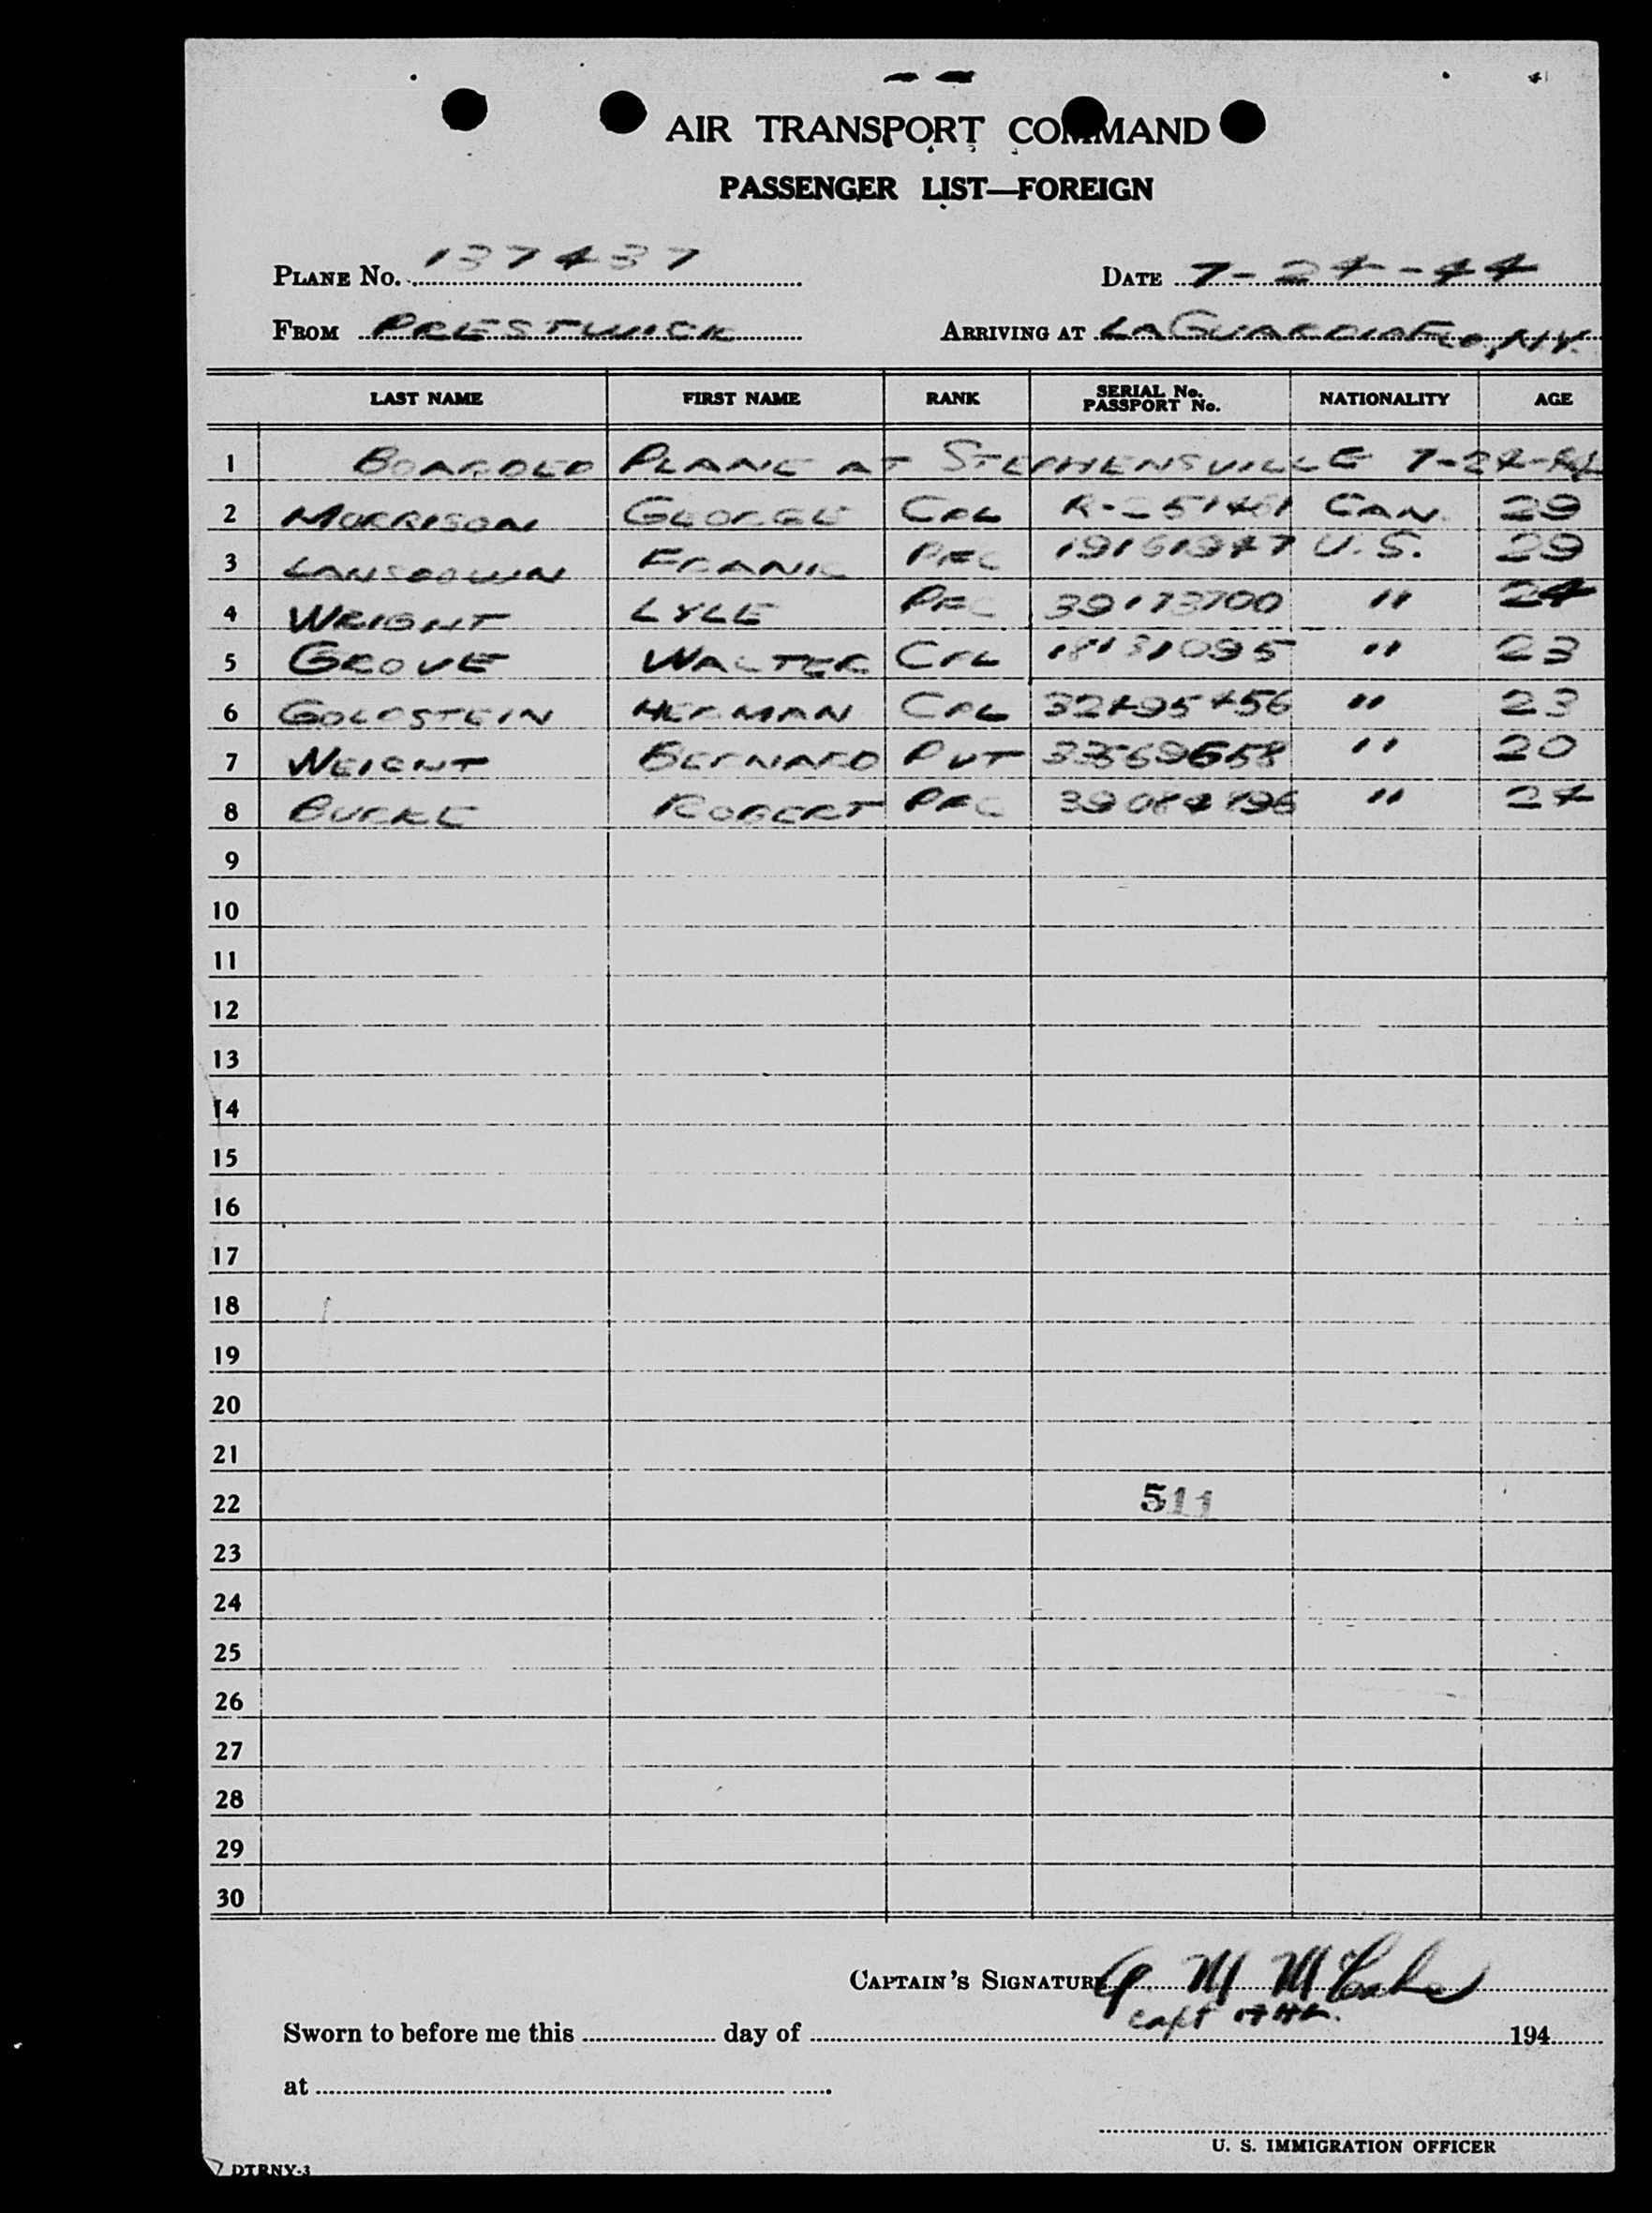 AIR TRANSPORT COMMAND
PASSENGER LIST—FOREIGN
PLANE No. 137437 DATE 7-24-44
FROM PRESTWICK ARRIVING AT LAGUARDIA FLD, N.Y.
LAST NAME FIRST NAME RANK SERIAL No. PASSPORT No. NATIONALITY AGE
1 BOARDED PLANE AT STEPHENSVILLE 7-24-44
2 MORRISON GEORGE CPL R-251461 CAN. 29
3 LANSDOWN FRANK PFC 19161947 U.S. 29
4 WRIGHT LYLE PFC 39173700 " 24
5 GROVE WALTER CPL 18131095 " 23
6 GOLDSTEIN HERMAN CPL 32495456 " 23
7 WEIGHT BERNARD PVT 33569658 " 20
8 BURKE ROBERT PFC 39084796 " 24
9
10
11
12
13
14
15
16
17
18
19
20
21
22 511
23
24
25
26
27
28
29
30
CAPTAIN'S SIGNATURE M M
Capt
Sworn to before me this day of 194
at
U. S. IMMIGRATION OFFICER
DTRNY-3